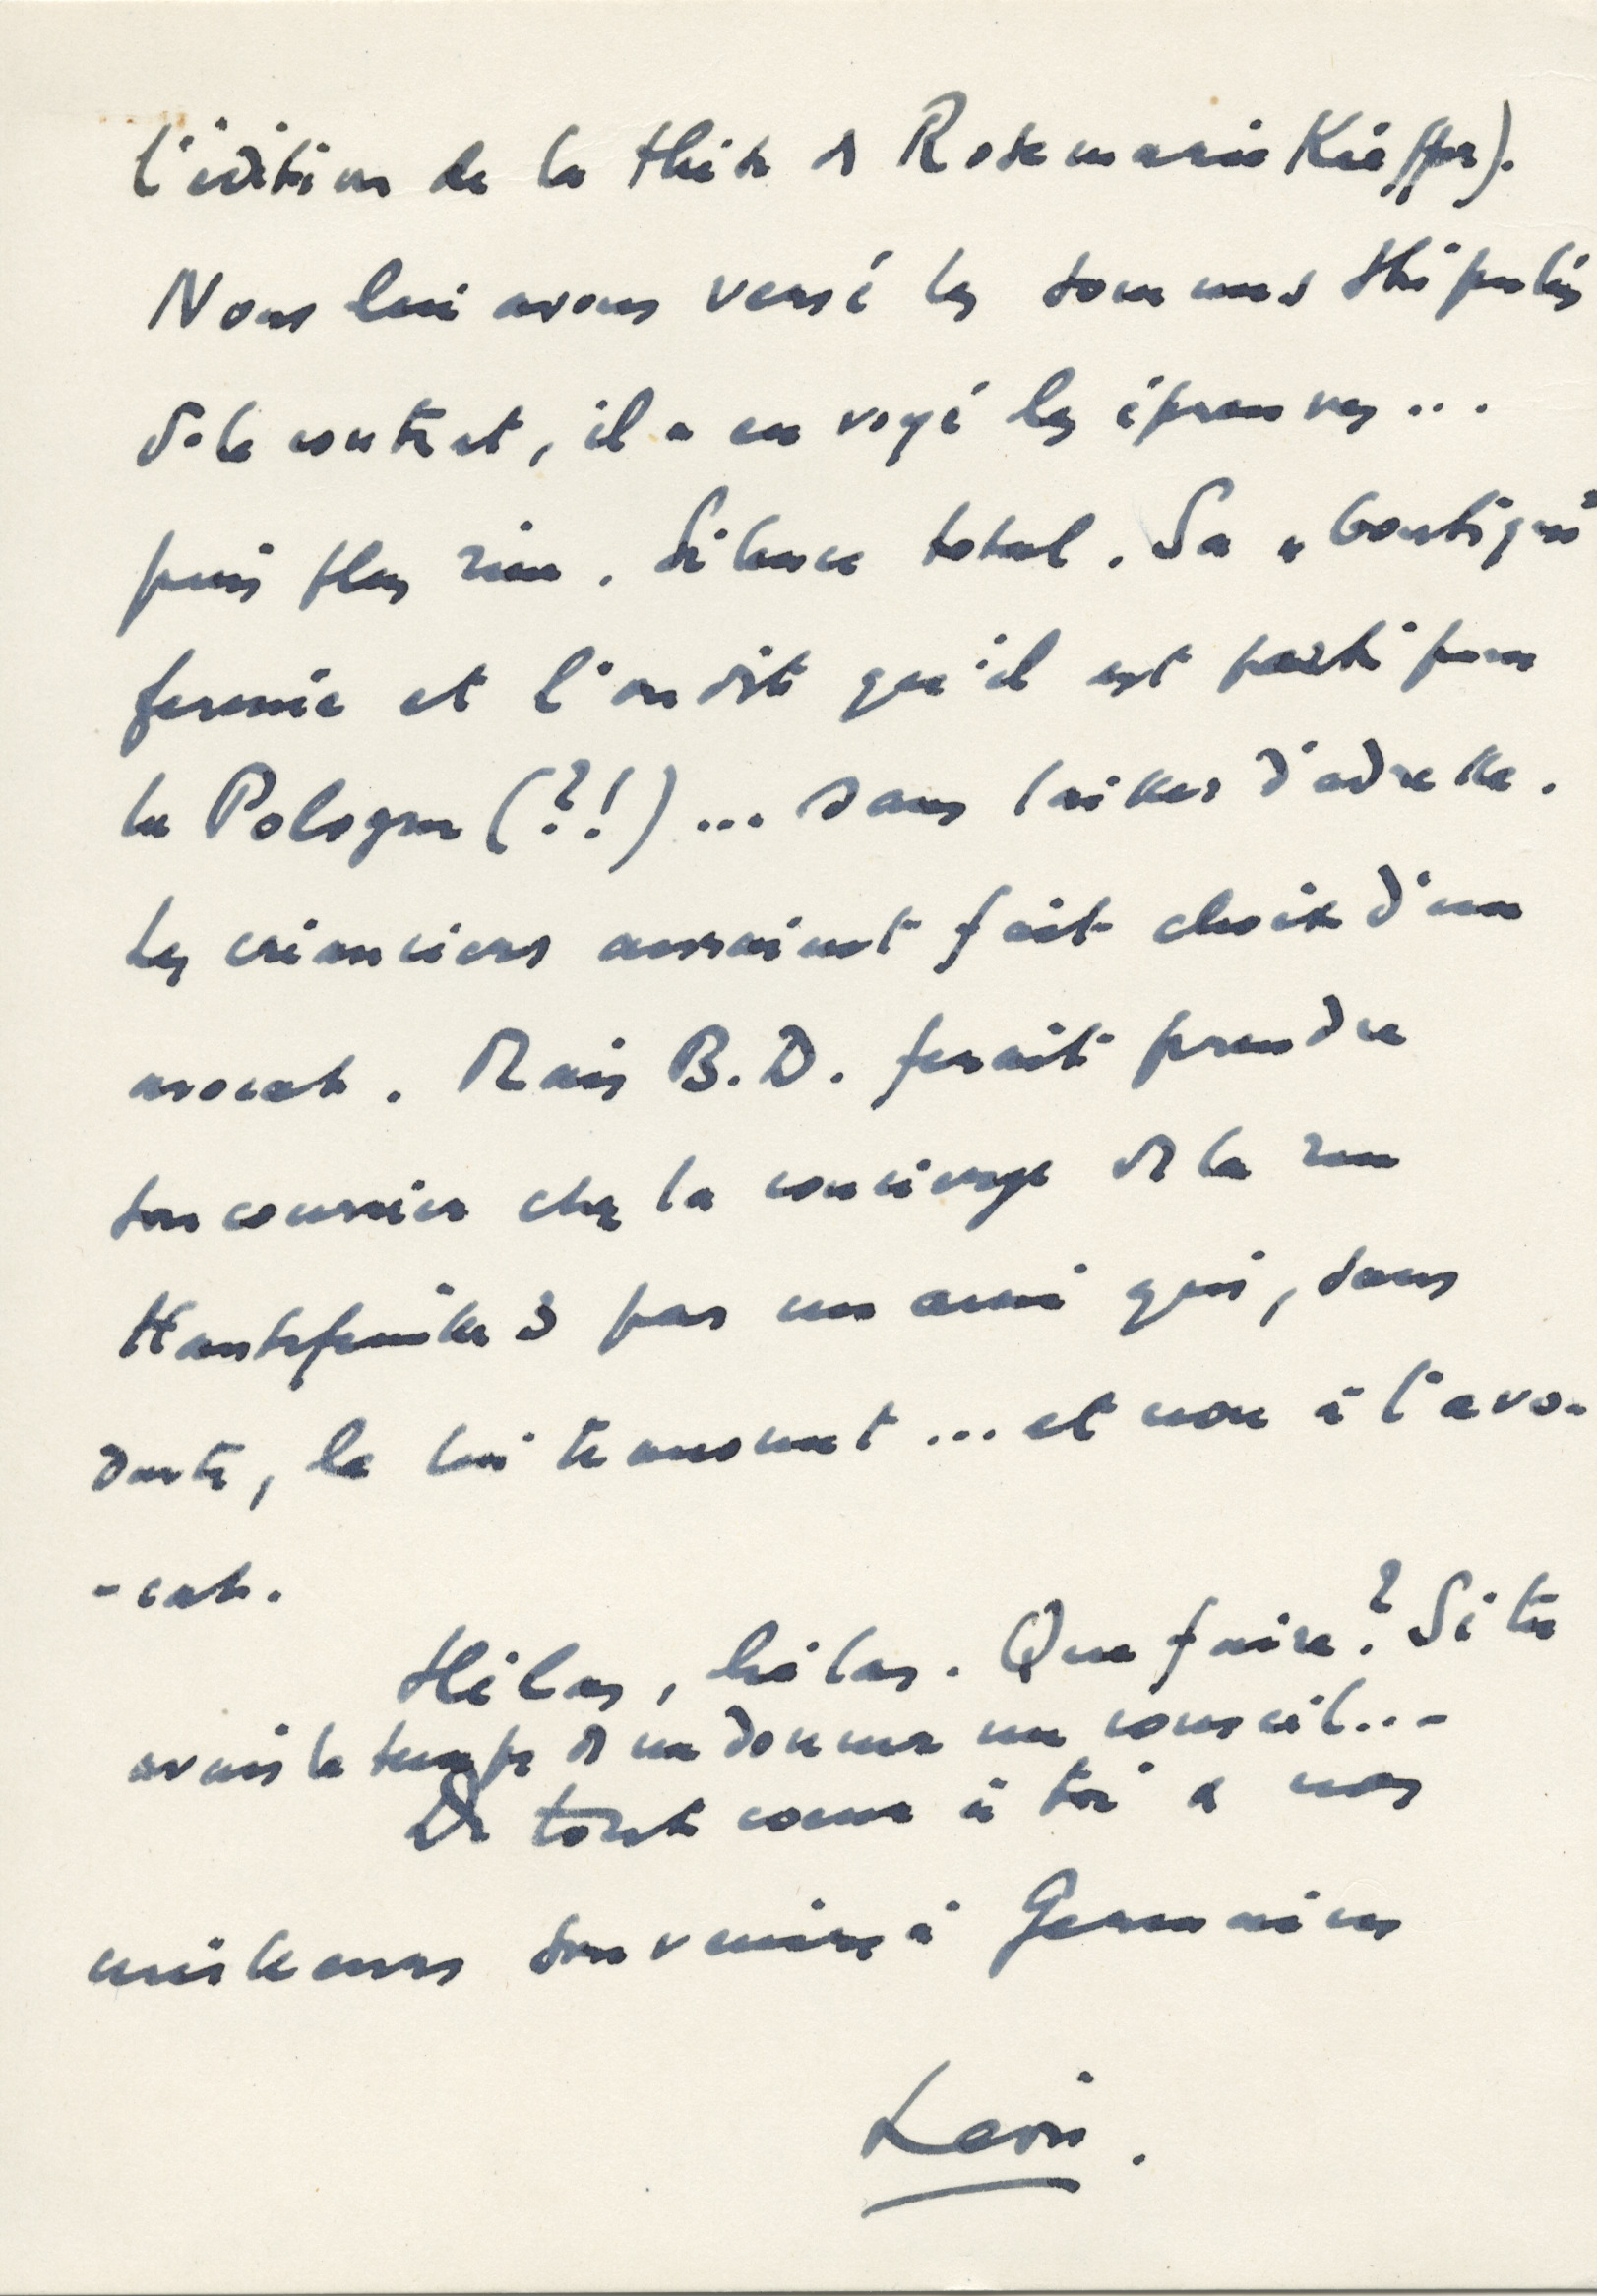 l'édition de la thèse de Rosemarie Kieffer).
Nous lui avons versé les sommes stipulées
ds le contrat, il a envoyé les épreuves...
puis plus rien. Silence total. Sa "boutique"
fermée et l'on dit qu'il est parti pour
la Pologne (?!) ... sans laisser d'adresse.
Les créanciers auraient fait choix d'un
avocat. Mais B.D. ferait prendre
son courrier chez la concierge de la rue
Hautefeuille 3 par un ami qui, sans
doute, le lui transmet ... et non à l'avo-
-cat.
Hélas, hélas. Que faire? Si tu
avais le temps de me donner un conseil...
De tout coeur à toi & nos
meilleurs souvenirs à Germaine